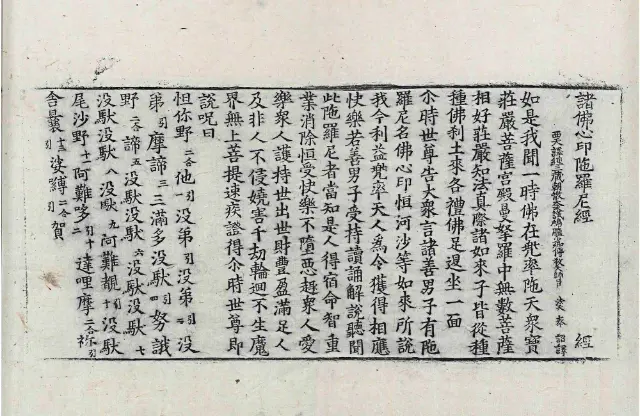 諸佛心印陁羅尼經 經
西天譯經三藏朝散大夫試鴻臚少卿傳教大師臣 奉 詔譯
如是我聞一時佛在兜率陁天衆寶
莊嚴菩薩宮殿曼拏羅中無數菩薩
相好莊嚴知法真際諸如來子皆從種
種佛刹土來各禮佛足退坐一面
尒時世尊告大衆言諸善男子有陁
羅尼名佛心印恒河沙等如來所說
我今利益兜率天人爲令獲得相應
快樂若善男子受持讀誦解說聽聞
此陁羅尼者當知是人得宿命智重
業消除恒受快樂不墮惡趣衆人愛
樂衆人護持世出世財豐盈滿足人
及非人不侵嬈害千劫輪迴不生魔
界無上菩提速疾證得尒時世尊即
說呪曰
怛你野二合他一没第引没第二引没
第引摩諦三三滿多没馱引四努誐
野二合諦五没馱没馱六没馱没馱七
没馱没馱八没馱九阿難覩引十没馱
尾沙野十一阿難哆引十二達哩摩二合祢引
舍曩十三娑縛二合引賀